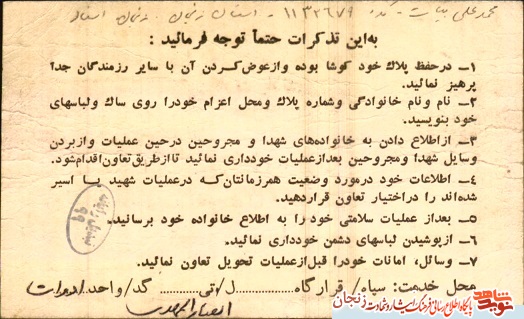 محمد علی بیات - کد ۱۱۳۲۶۷۹ - استان زنجان - زنجان
به این تذکرات حتماً توجه فرمائید :
۱- درحفظ پلاك خود كوشا بوده وازعوض كردن آن با سایر رزمندگان جدا
پرهیز نمائید.
۲- نام ونام خانوادگی وشماره پلاك ومحل اعزام خودرا روی ساك ولباسهای
خود بنویسید.
۳- ازاطلاع دادن به خانواده‌های شهدا و مجروحین درحین عملیات وازبردن
وسایل شهدا ومجروحین بعدازعملیات خودداری نمائید تاازطریق تعاون اقدام شود.
۴- اطلاعات خود درمورد وضعیت همرزمانتان كه درعملیات شهید یا اسیر
شده‌اند را دراختیار تعاون قراردهید.
۵- بعداز عملیات سلامتی خود را به اطلاع خانواده خود برسانید.
۶- ازپوشیدن لباسهای دشمن خودداری نمائید.
۷- وسائل، امانات خودرا قبل ازعملیات تحویل تعاون نمائید.
محل خدمت: سپاه/ قرارگاه ............ ل/تی ........ گد/واحد ادوات
انصارالمهدی
نوید شاهد
پایگاه اطلاع رسانی فرهنگ ایثار و شهادت زنجان